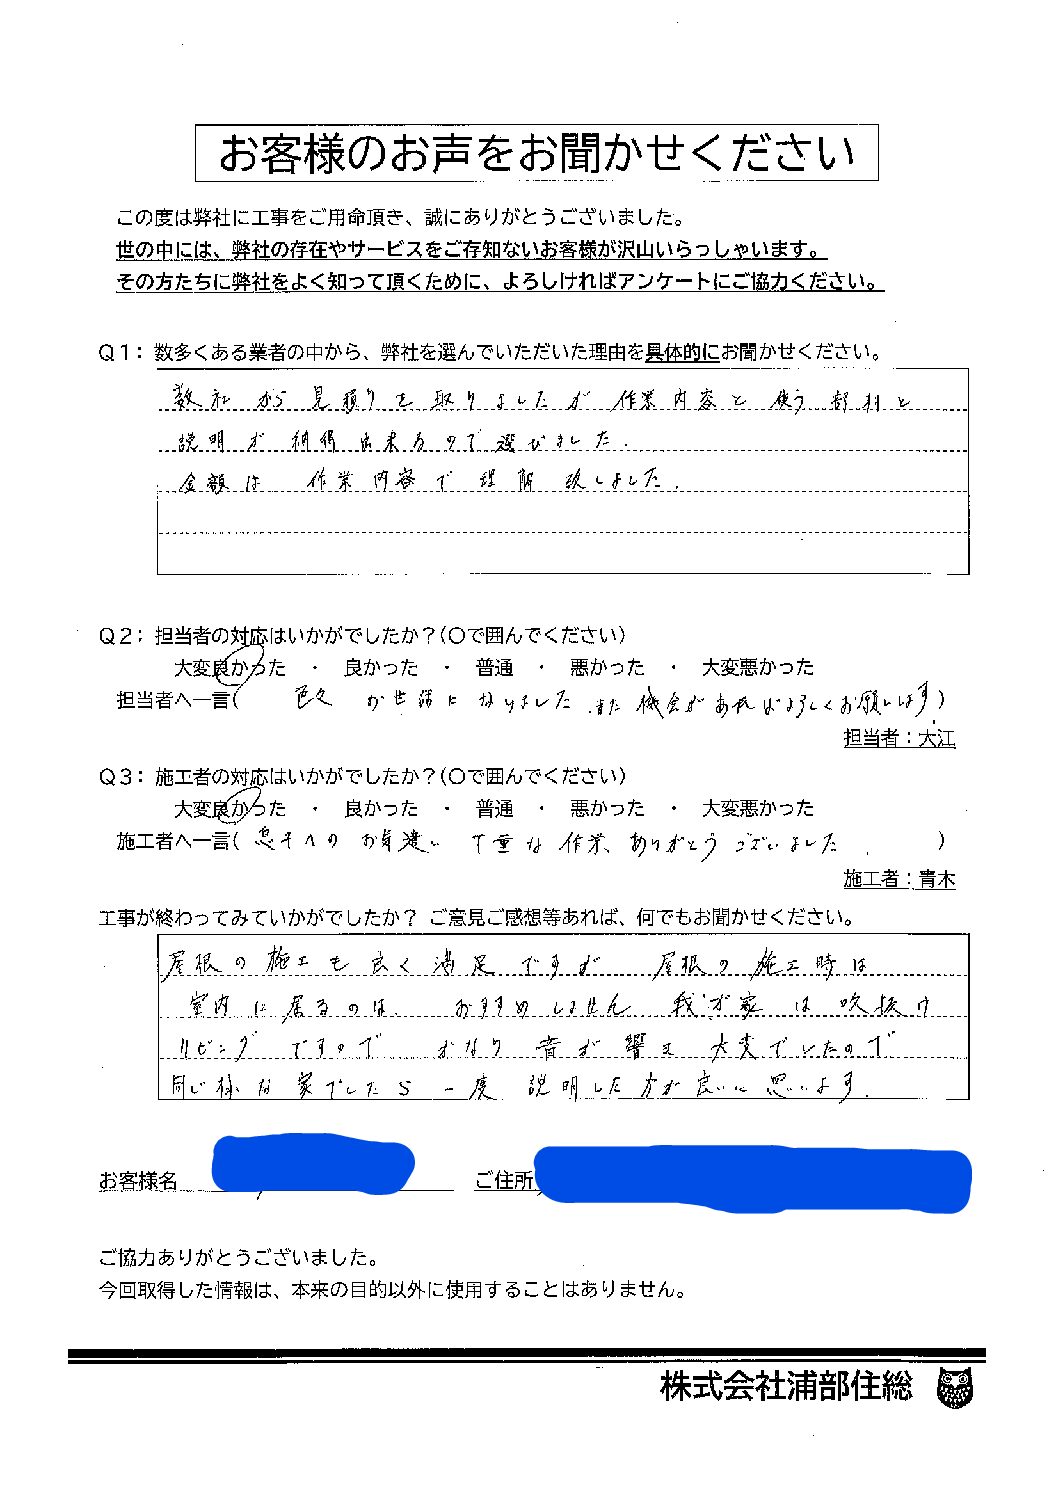 お客様のお声をお聞かせください
この度は弊社に工事をご用命頂き、誠にありがとうございました。
世の中には、弊社の存在やサービスをご存知ないお客様が沢山いらっしゃいます。
その方たちに弊社をよく知って頂くために、よろしければアンケートにご協力ください。
Q1：数多くある業者の中から、弊社を選んでいただいた理由を具体的にお聞かせください。
数社から見積りを取りましたが作業内容と使う部材と
説明が納得出来るので選びました.
金額は作業内容で理解致しました.
Q2；担当者の対応はいかがでしたか？(〇で囲んでください)
大変良かった ・ 良かった ・ 普通 ・ 悪かった ・ 大変悪かった
担当者へ一言( 色々お世話になりました.また機会があればよろしくお願いします)
担当者：大江
Q3：施工者の対応はいかがでしたか？(〇で囲んでください)
大変良かった ・ 良かった ・ 普通 ・ 悪かった ・ 大変悪かった
施工者へ一言( 息子へのお気遣い 丁重な作業、ありがとうございました. )
施工者：青木
工事が終わってみていかがでしたか？ ご意見ご感想等あれば、何でもお聞かせください。
屋根の施工も良く満足ですが 屋根の施工時は
室内に居るのは、おすすめしません 我が家は吹抜け
リビングですので かなり音が響き大変でしたので
同じ様な家でしたら一度説明した方が良いと思います.
お客様名 ご住所
ご協力ありがとうございました。
今回取得した情報は、本来の目的以外に使用することはありません。
株式会社浦部住総